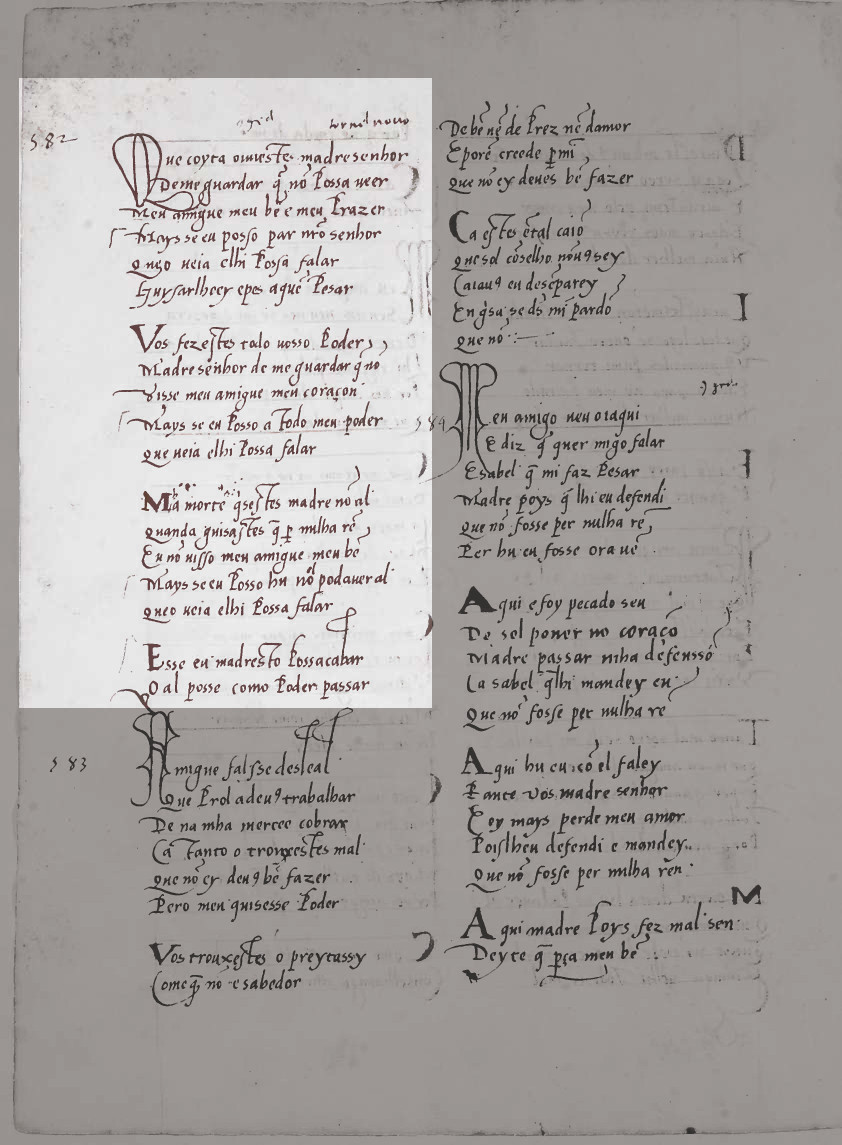 582 tornel nouo
Que coyta ouuestes madre senhor
De me guardar q̄ nō Possa ueer
Meu amigue meu bē e meu Prazer
Mays se eu posso par nr̄o senhor
Queo ueia elhi Possa falar
Guysarlhey epes aquē Pesar
Vos fezestes todo uosso Poder
Madre senhor de me guardar q̄ nō
Visse meu amigue meu coraçon
Mays se eu Posso a todo meu poder
que ueia elhi Possa falar
Mha morte q̄sestes madre nō al
Quanda guisastes q̄ ꝑ nulha rē
Eu nō uisso meu amigue meu bē
Mays se eu Posso hu nō podauer al
queo ueia elhi Possa falar
Esse eu madresto Possacabar
O al posse como Poder passar
583
Amigue falsse desleal
Que Prol a deu9 trabalhar
De na mha mercee cobrar
Ca tanto o trouxestes mal
Que nō ey deu9 bē fazer
Pero meu quisesse Poder
Vos trouxestes o preytassy
Come q̄ nō e sabedor
De bē nē de Prez nē damor
E porē creede ꝑ mī
que nō ey deues bē fazer
Ca estes ētal caiō
que sol cōselho nō u9 sey
Ca ia u9 eu desēparey
En g'sa se ds̄ mī pardō
que nō
584
Meu amigo ueu oiaqui
E diz q̄ quer migo falar
E sabel q̄ mi faz Pesar
Madre poys q̄ lhi eu defendi
Que nō fosse per nulha rē
Per hu eu fosse ora uē
Aqui e foy pecado seu
De sol poner no coraçō
Madre passar mha defenssō
Ca sabel q̄ lhi mandey eu
Que nō fosse per nulha rē
Aqui hu eu cō el faley
Pante vos madre senhor
E oy mays perde meu amor
Poislheu defendi e mandey
Que nō fosse per nulha ren
M
Aqui madre Poys fez mal sen
Deyto q̄ ꝑça meu bē